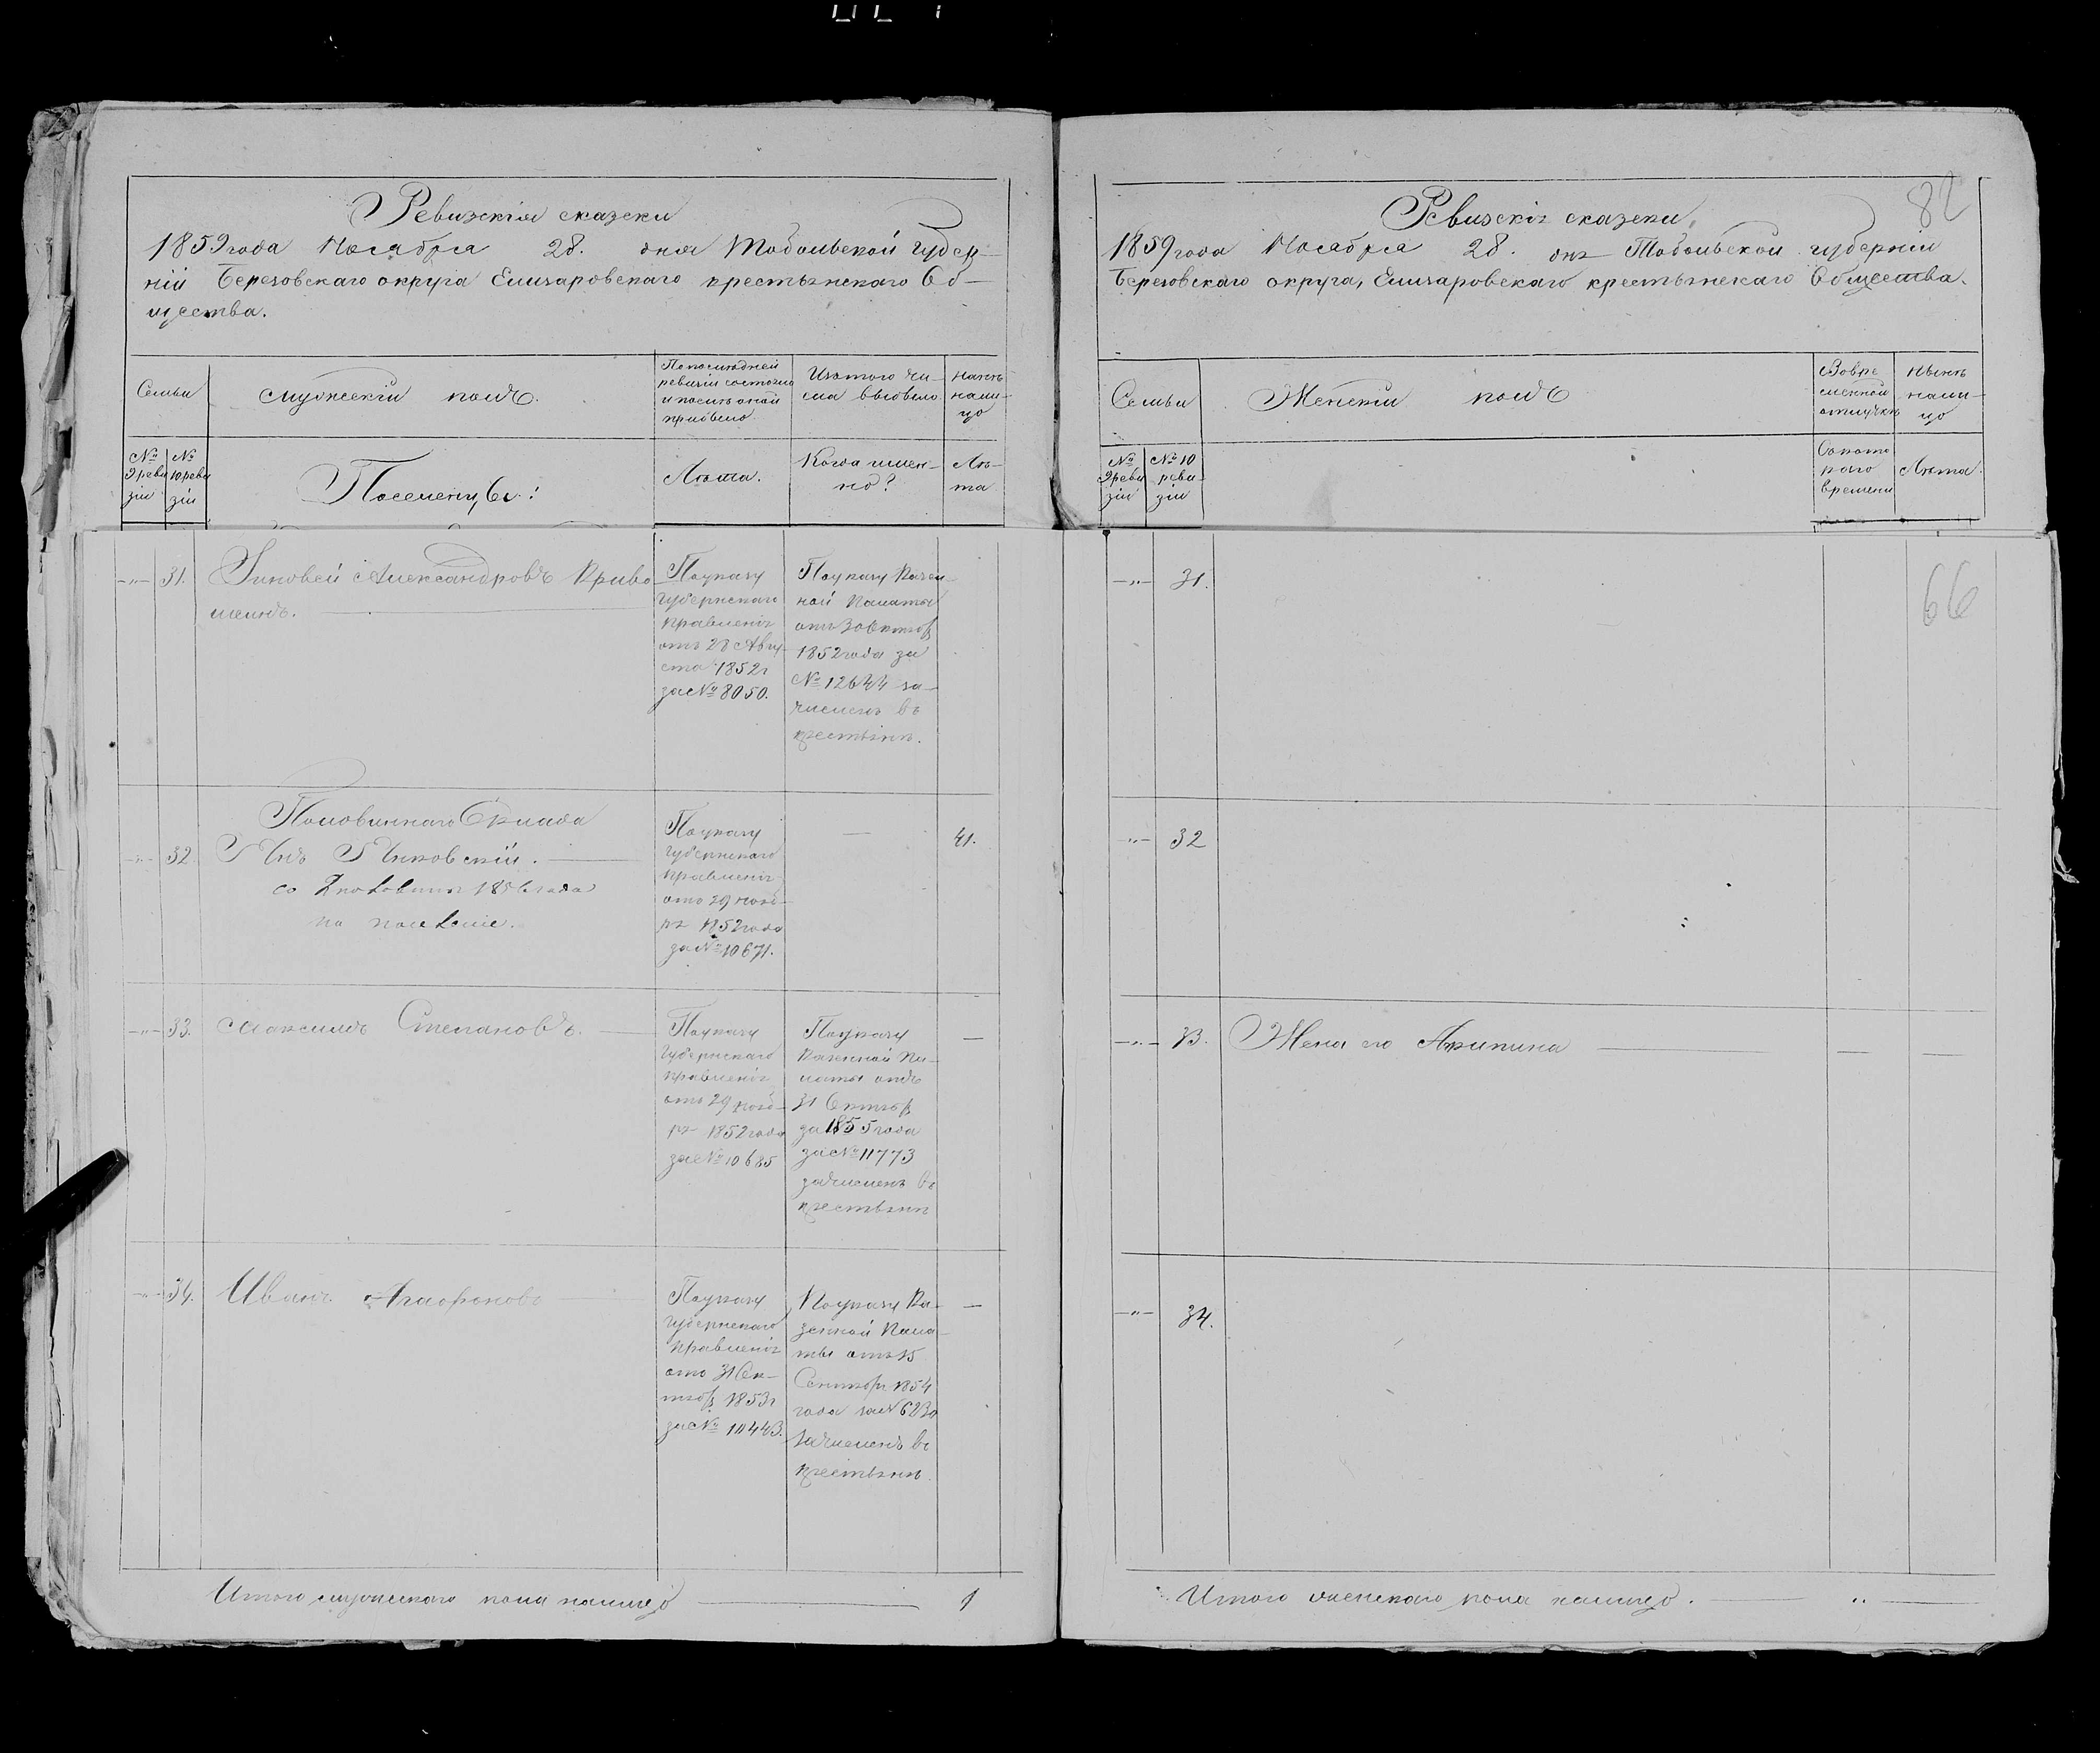 Ревизскія сказки
1859 года Ноября 28. дня Тобольской губер-
ніи Березовскаго округа Елизаровскаго крестьянскаго Об-
щества.
Семьи
Мужескій полъ.
По последней
ревизіи состояло
и после оной
прибыло
Изъ того чи-
сла выбыло
Нынѣ
нали-
цо
№
9 реви
зіи
№
10 реви
зіи
Поселенцы:
Лѣта.
Когда имен-
но?
Лѣ-
та
31. Зиновей Александровъ Криво
По указу
губернскаго
правленія
отъ 28 Авгу-
ста 1852 г
за № 8050.
По указу Казен-
ной Палаты
отъ 30 Октяб
1852 года за
№ 12644 за-
численъ въ
крестьяне.
Половиннаго Оклада
32.
по
По указу
губернскаго
правленія
отъ 29 нояб-
ря 1852 года
за № 10671.
—
41.
33. Максимъ Степановъ.
По указу
губернскаго
правленія
отъ 29 нояб-
ря 1852 года
за № 10685
По указу
Казенной Па-
латы отъ
31 Октяб
за 1855 года
за № 11773
зачисленъ въ
крестьяне
—
34. Иванъ Агафоновъ
По указу
губернскаго
правленія
отъ 31 Ок-
тяб 1853 г
за № 10443.
По указу Ка-
зенной Пала-
ты отъ 15
Сентябр 1854
года за №
зачисленъ въ
крестьяне.
—
Итого мужескаго пола налицо 1
82
Ревизскія сказки
1859 года Ноября 28. дня Тобольской губерніи
Березовскаго округа, Елизаровскаго крестьянскаго Общества.
Семьи
Женскій полъ
Во вре
менной
отлучкѣ
Нынѣ
нали-
цо
№
9 реви
зіи
№ 10
реви
зіи
Съ кото
раго
времени
Лѣта.
66
31.
32
33. Жена его Акилина — —
34.
Итого женскаго пола налицо. „